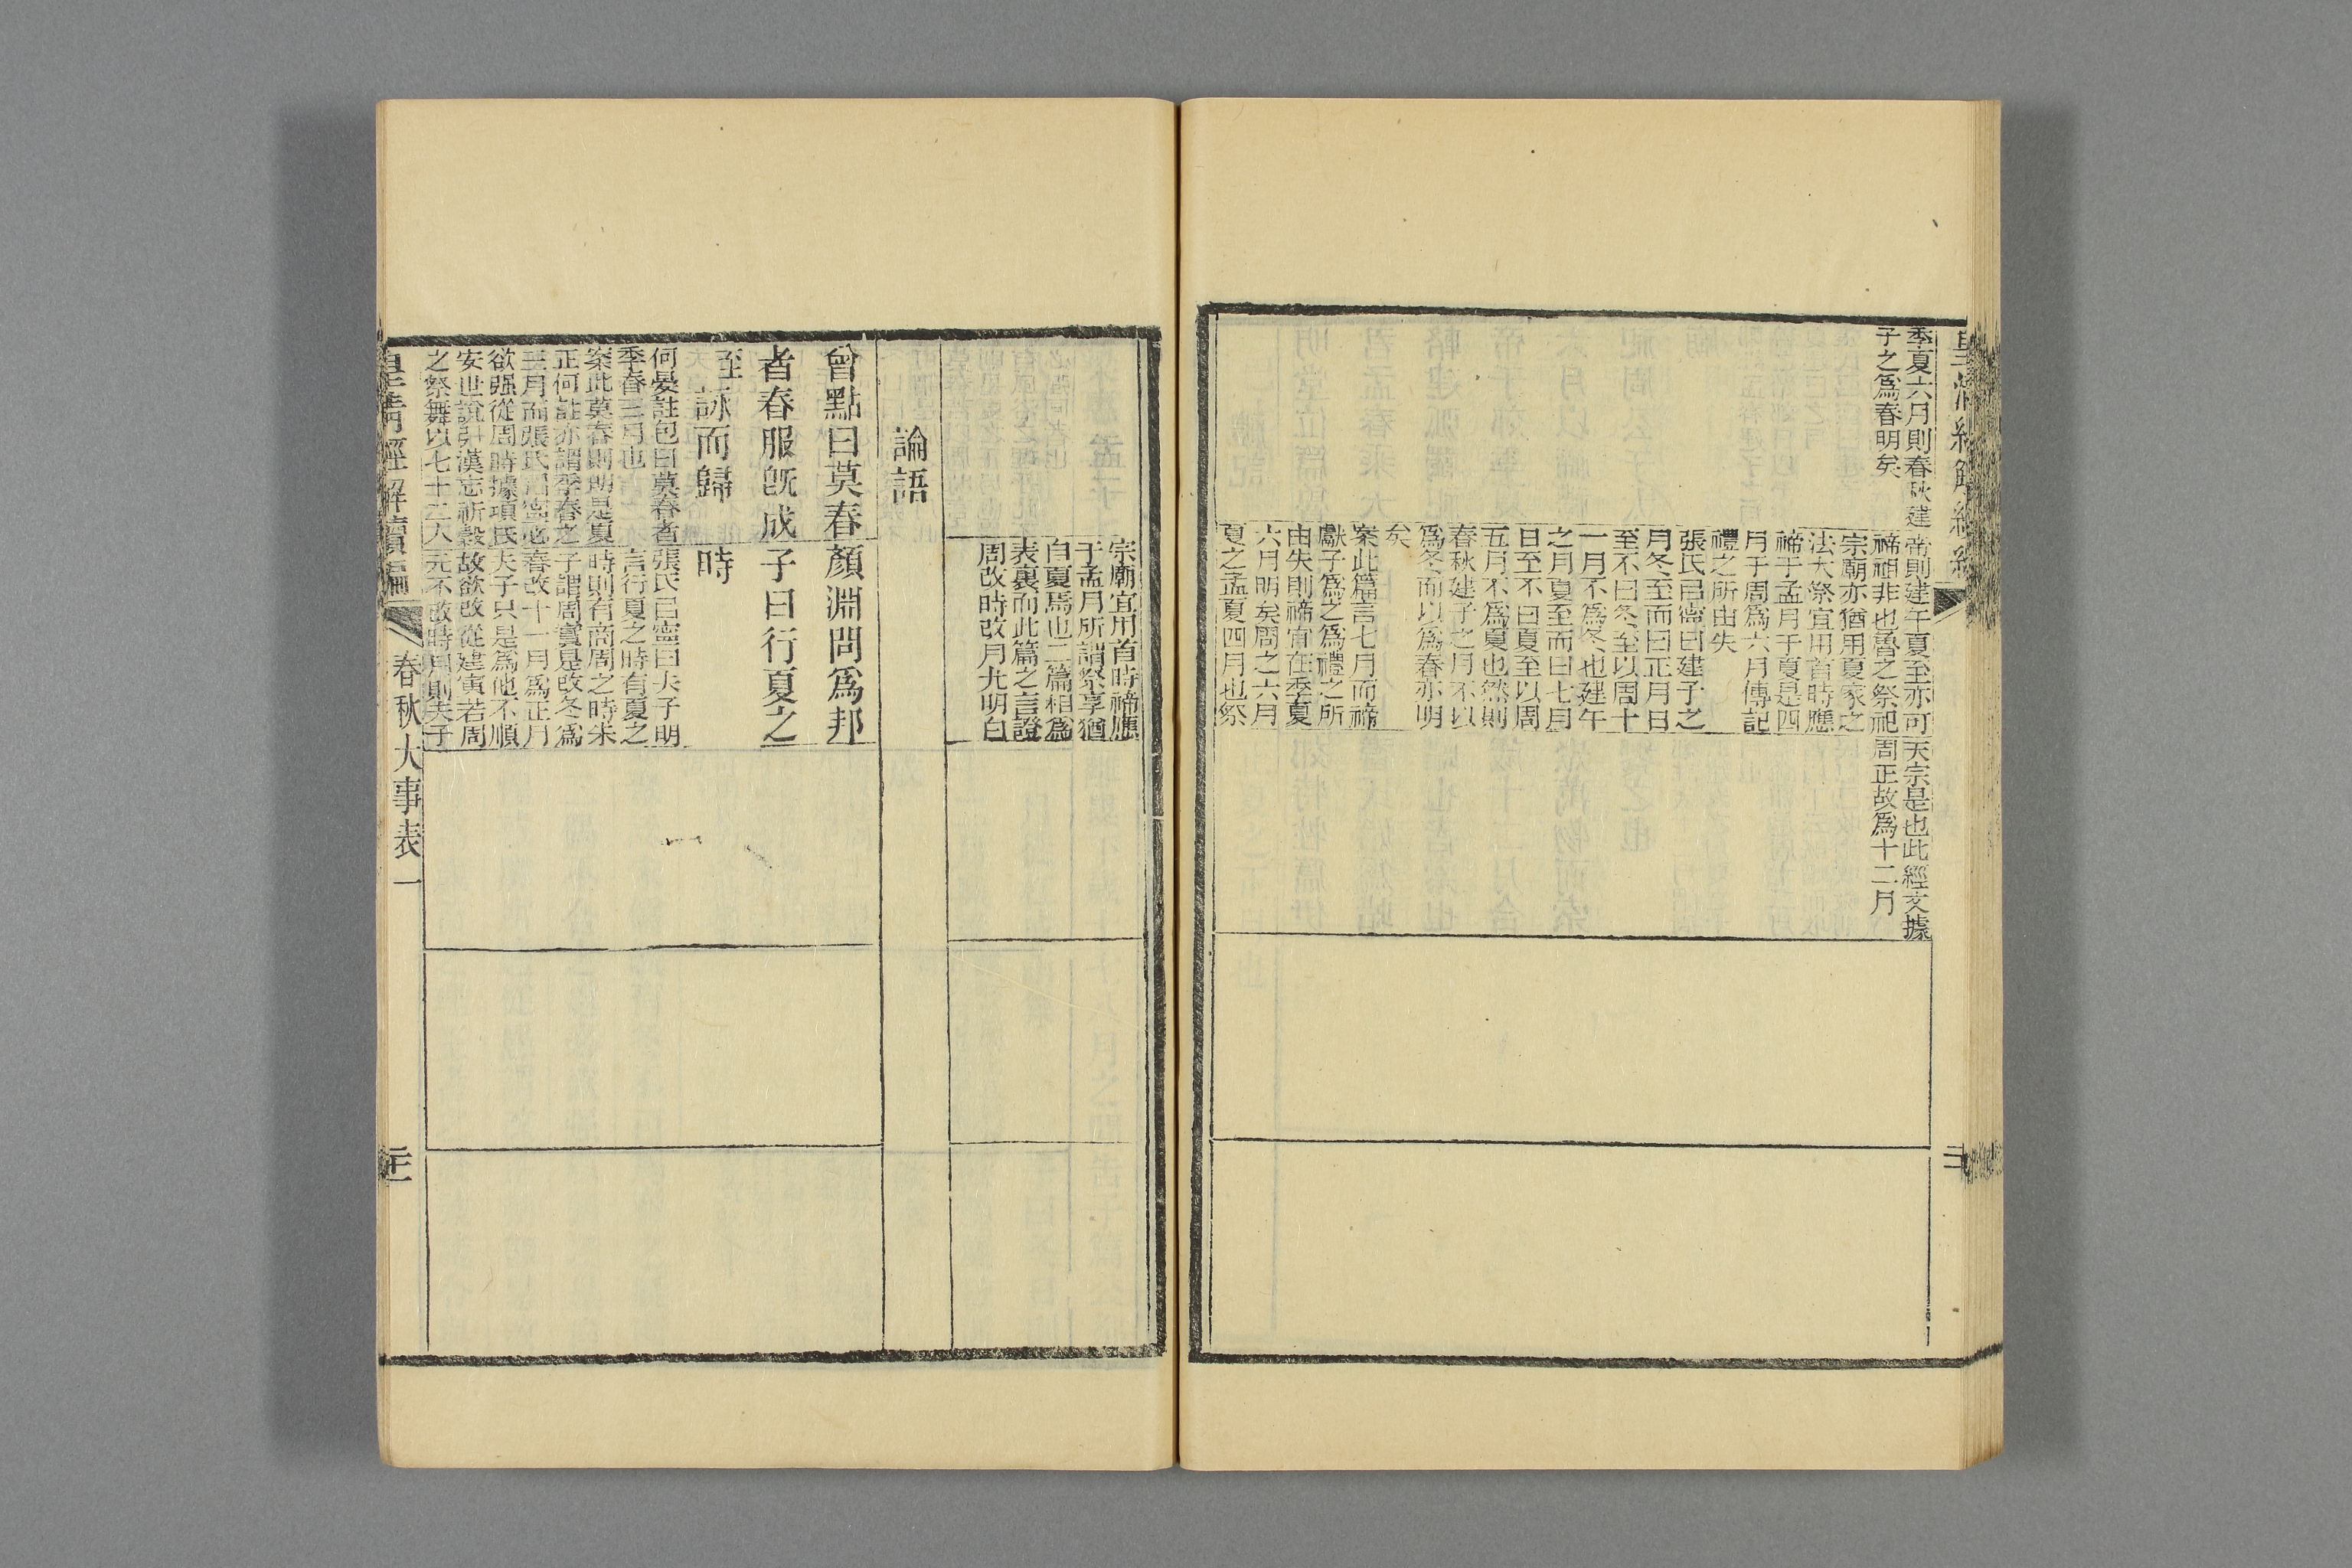 季夏六月則春秋建
子之爲春明矣
帝則建午夏至亦可
禘祖非也魯之祭祀
宗廟亦猶用夏家之
法大祭宜用首時應
禘于孟月于夏是四
月于周爲六月傳記
禮之所由失
張氏以寧曰建子之
月冬至而曰正月日
至不曰冬至以周十
一月不爲冬也建午
之月夏至而曰七月
日至不曰夏至以周
五月不爲夏也然則
春秋建子之月不以
爲冬而以爲春亦明
矣
案此篇言七月而禘
獻子爲之爲禮之所
由失則禘宜在季夏
六月明矣周之六月
夏之孟夏四月也祭
天宗是也此經文據
周正故爲十二月
宗廟宜用首時禘應
于孟月所謂祭享猶
自夏焉也二篇相爲
表裏而此篇之言證
周改時改月尤明白
論語
曾點曰莫春
者春服既成
至詠而歸
何晏註包曰莫春者
季春三月也
案此莫春則明是夏
正何註亦謂季春之
三月而張氏以寧必
欲强從周時據項氏
安世說引漢志祈穀
之祭舞以七十二人
顏淵問爲邦
子曰行夏之
時
張氏以寧曰夫子明
言行夏之時有夏之
時則有商周之時朱
子謂周實是改冬爲
春改十一月爲正月
夫子只是爲他不順
故欲改從建寅若周
元不改時月則夫子
皇清經解續編
春秋大事表一